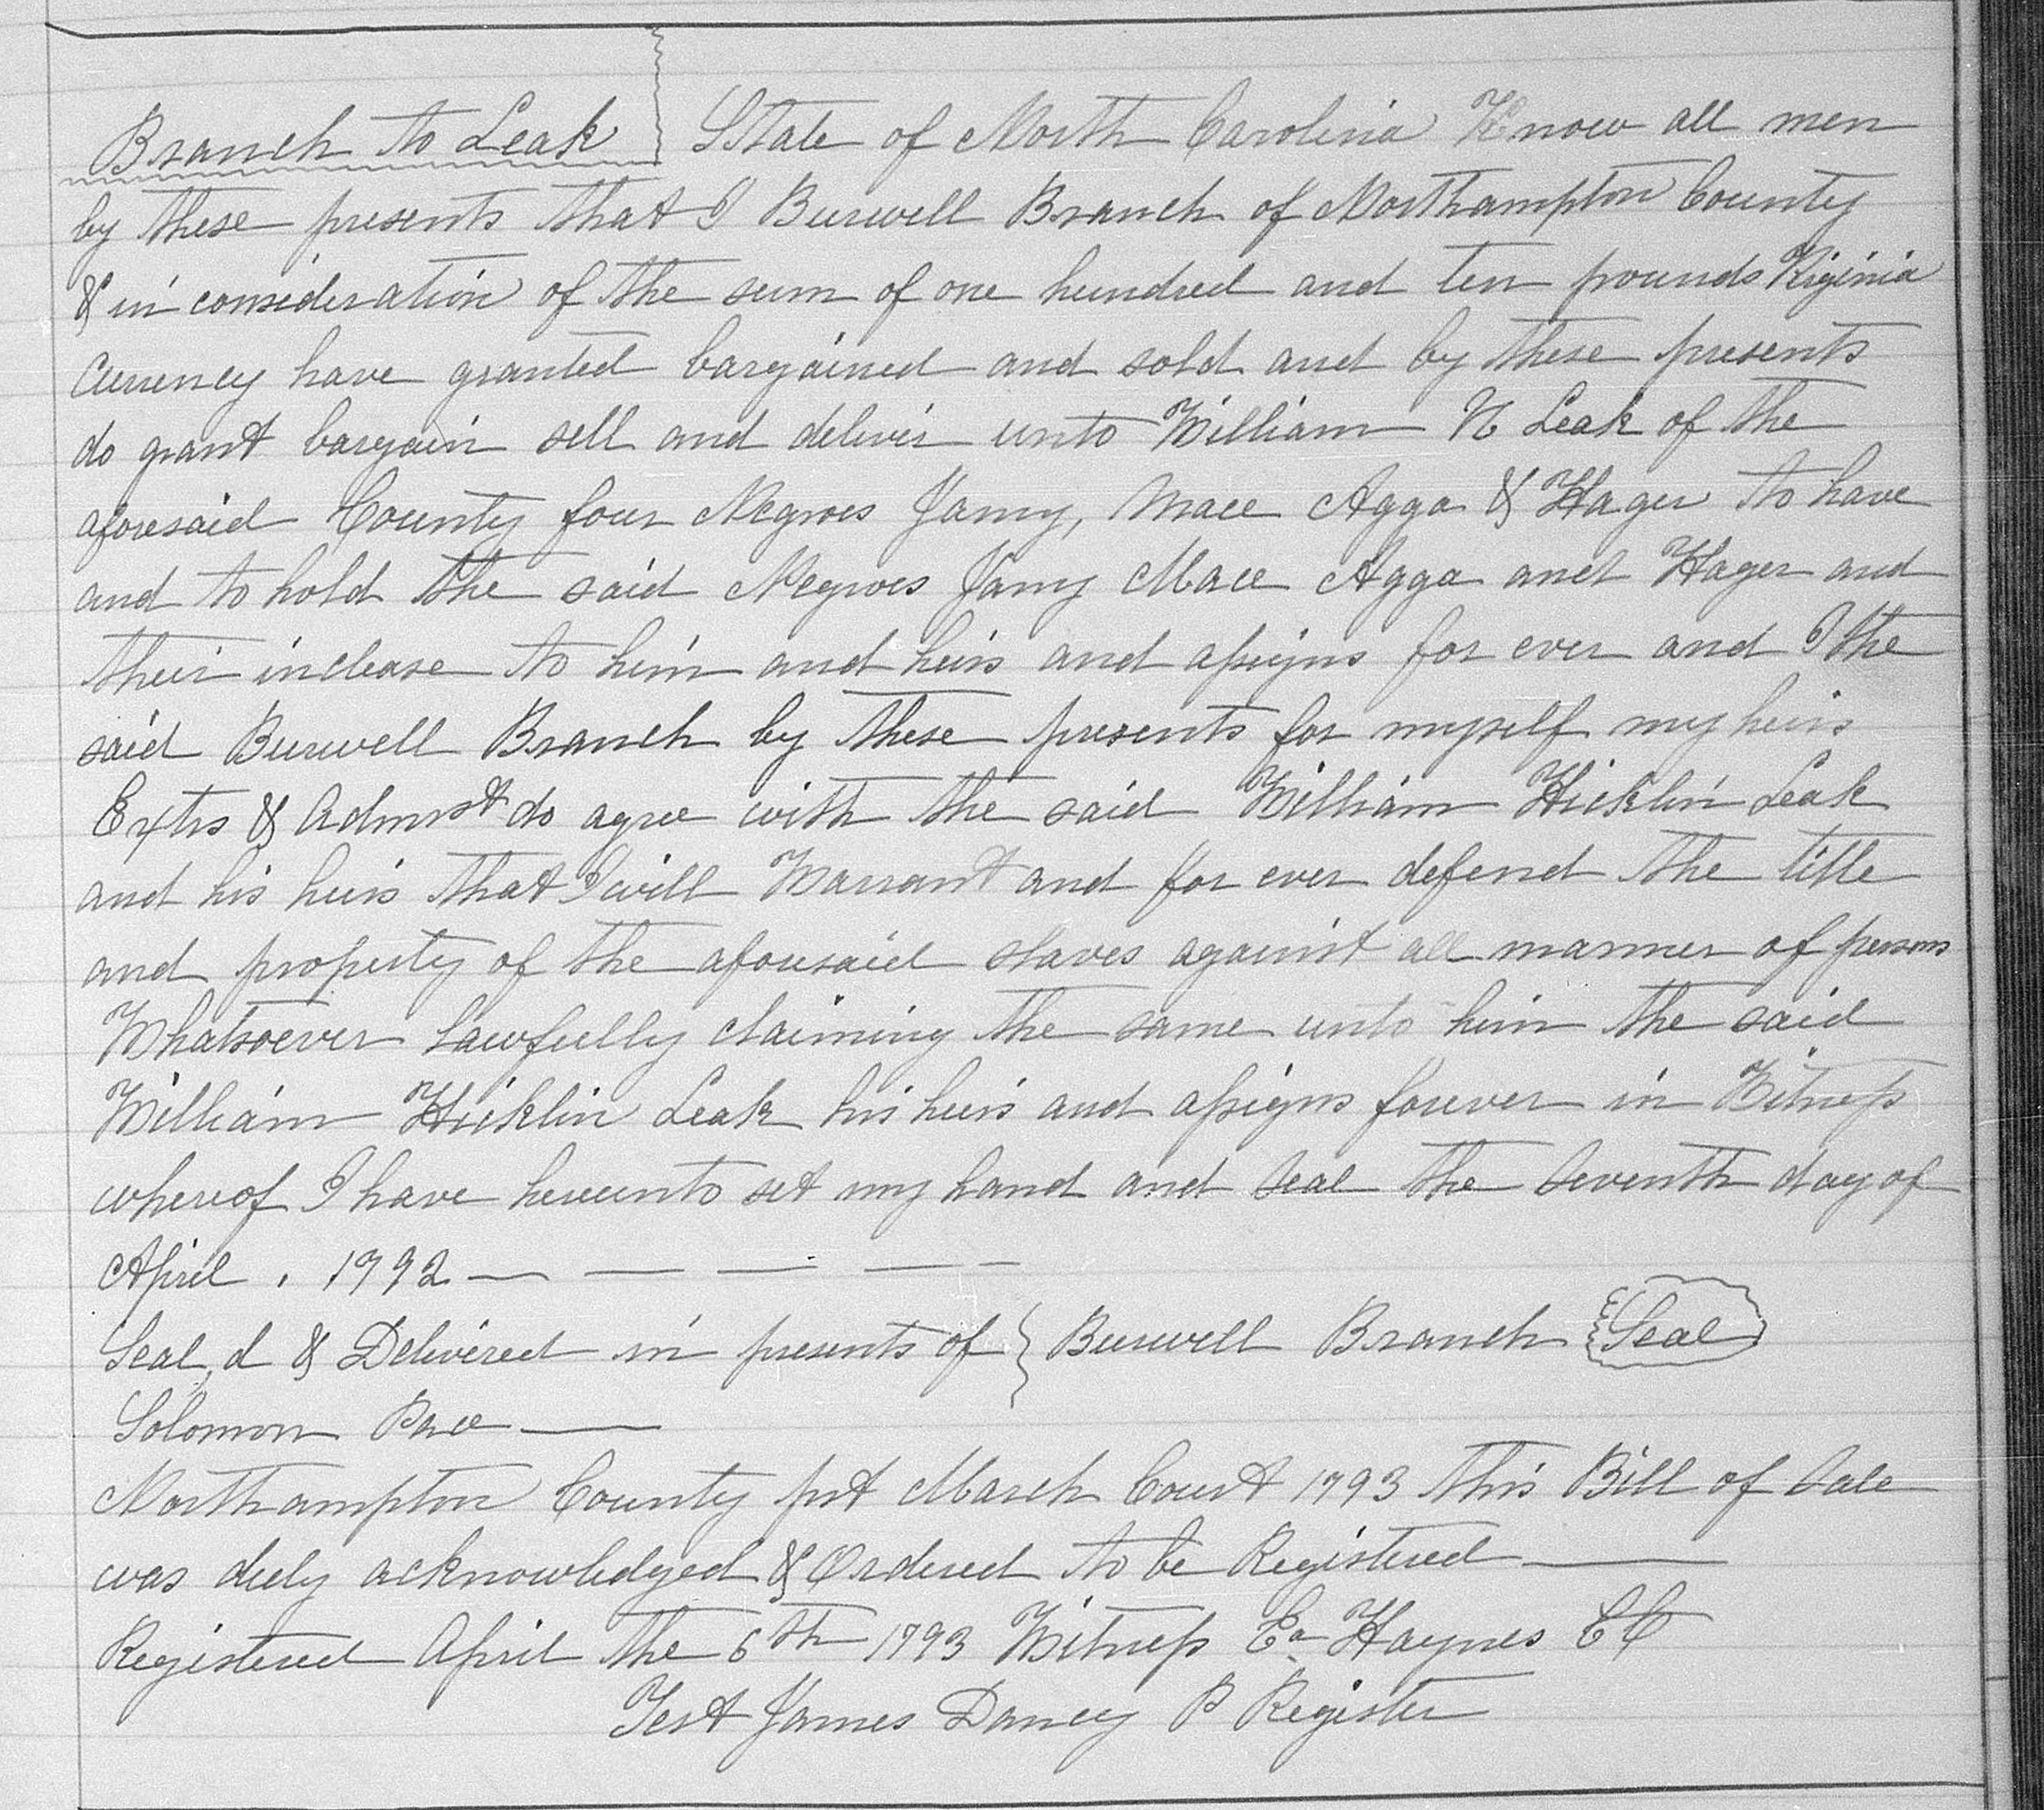 Branch to Leak State of North Carolina Know all men
by these presents that I Burwell Branch of Northampton County
& in consideration of the sum of one hundred and ten pounds Virginia
Currency have granted bargained and sold and by these presents
do grant bargain sell and deliver unto William H Leak of the
aforesaid County four Negroes Jamy, Mace Agga & Hager to have
and to hold the said Negroes Jamy Mace Agga and Hager and
their inclease to him and heirs and assigns for ever and I the
said Burwell Branch by these presents for myself my heirs
Extrs & Admrst do agree with the said William Hicklin Leak
and his heirs that I will Warrant and for ever defend the title
and property of the aforesaid slaves against all manner of persons
Whatsoever Lawfully claiming the same unto him the said
William Hicklin Leak his heirs and assigns forever in Witness
whereof I have hereunto set my hand and seal the Seventh day of
April . 1792
Seal,d & Delivered in presents of } Burwell Branch Seal
Solomon
Northampton County pst March Court 1793 this Bill of Sale
was duly acknowledged & Ordered to be Registered
Registered April the 6th 1793 Witness Ea Haynes CC
Test James Dancy P Register